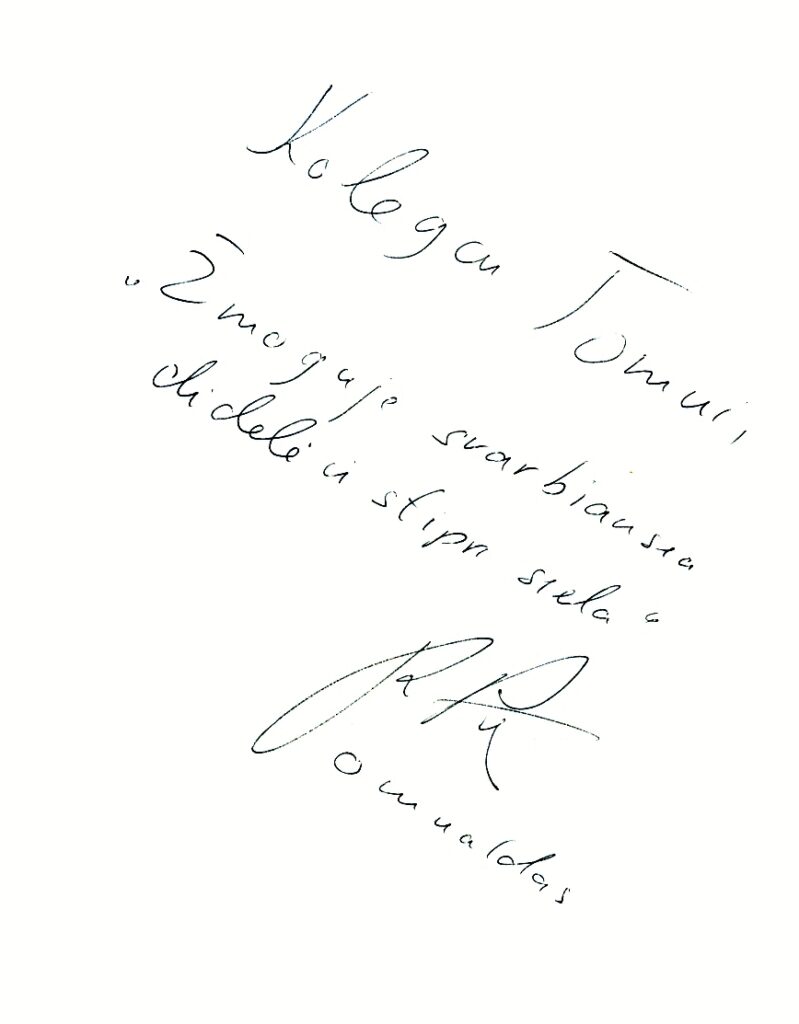 Kolegai Tomui,
„Žmoguje svarbiausia
didelė ir stipri siela“
omualdas